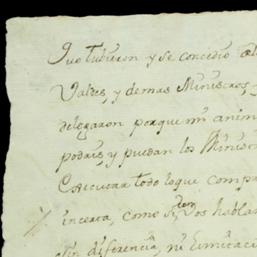 tubieron y se concedio
Valres, y demas Ministros,
delegaron porque mi anim
podais, y puedan los Minist
Executar todo loque comp
incerta, como si Vos habla
sin diferencia, ni Limitaci